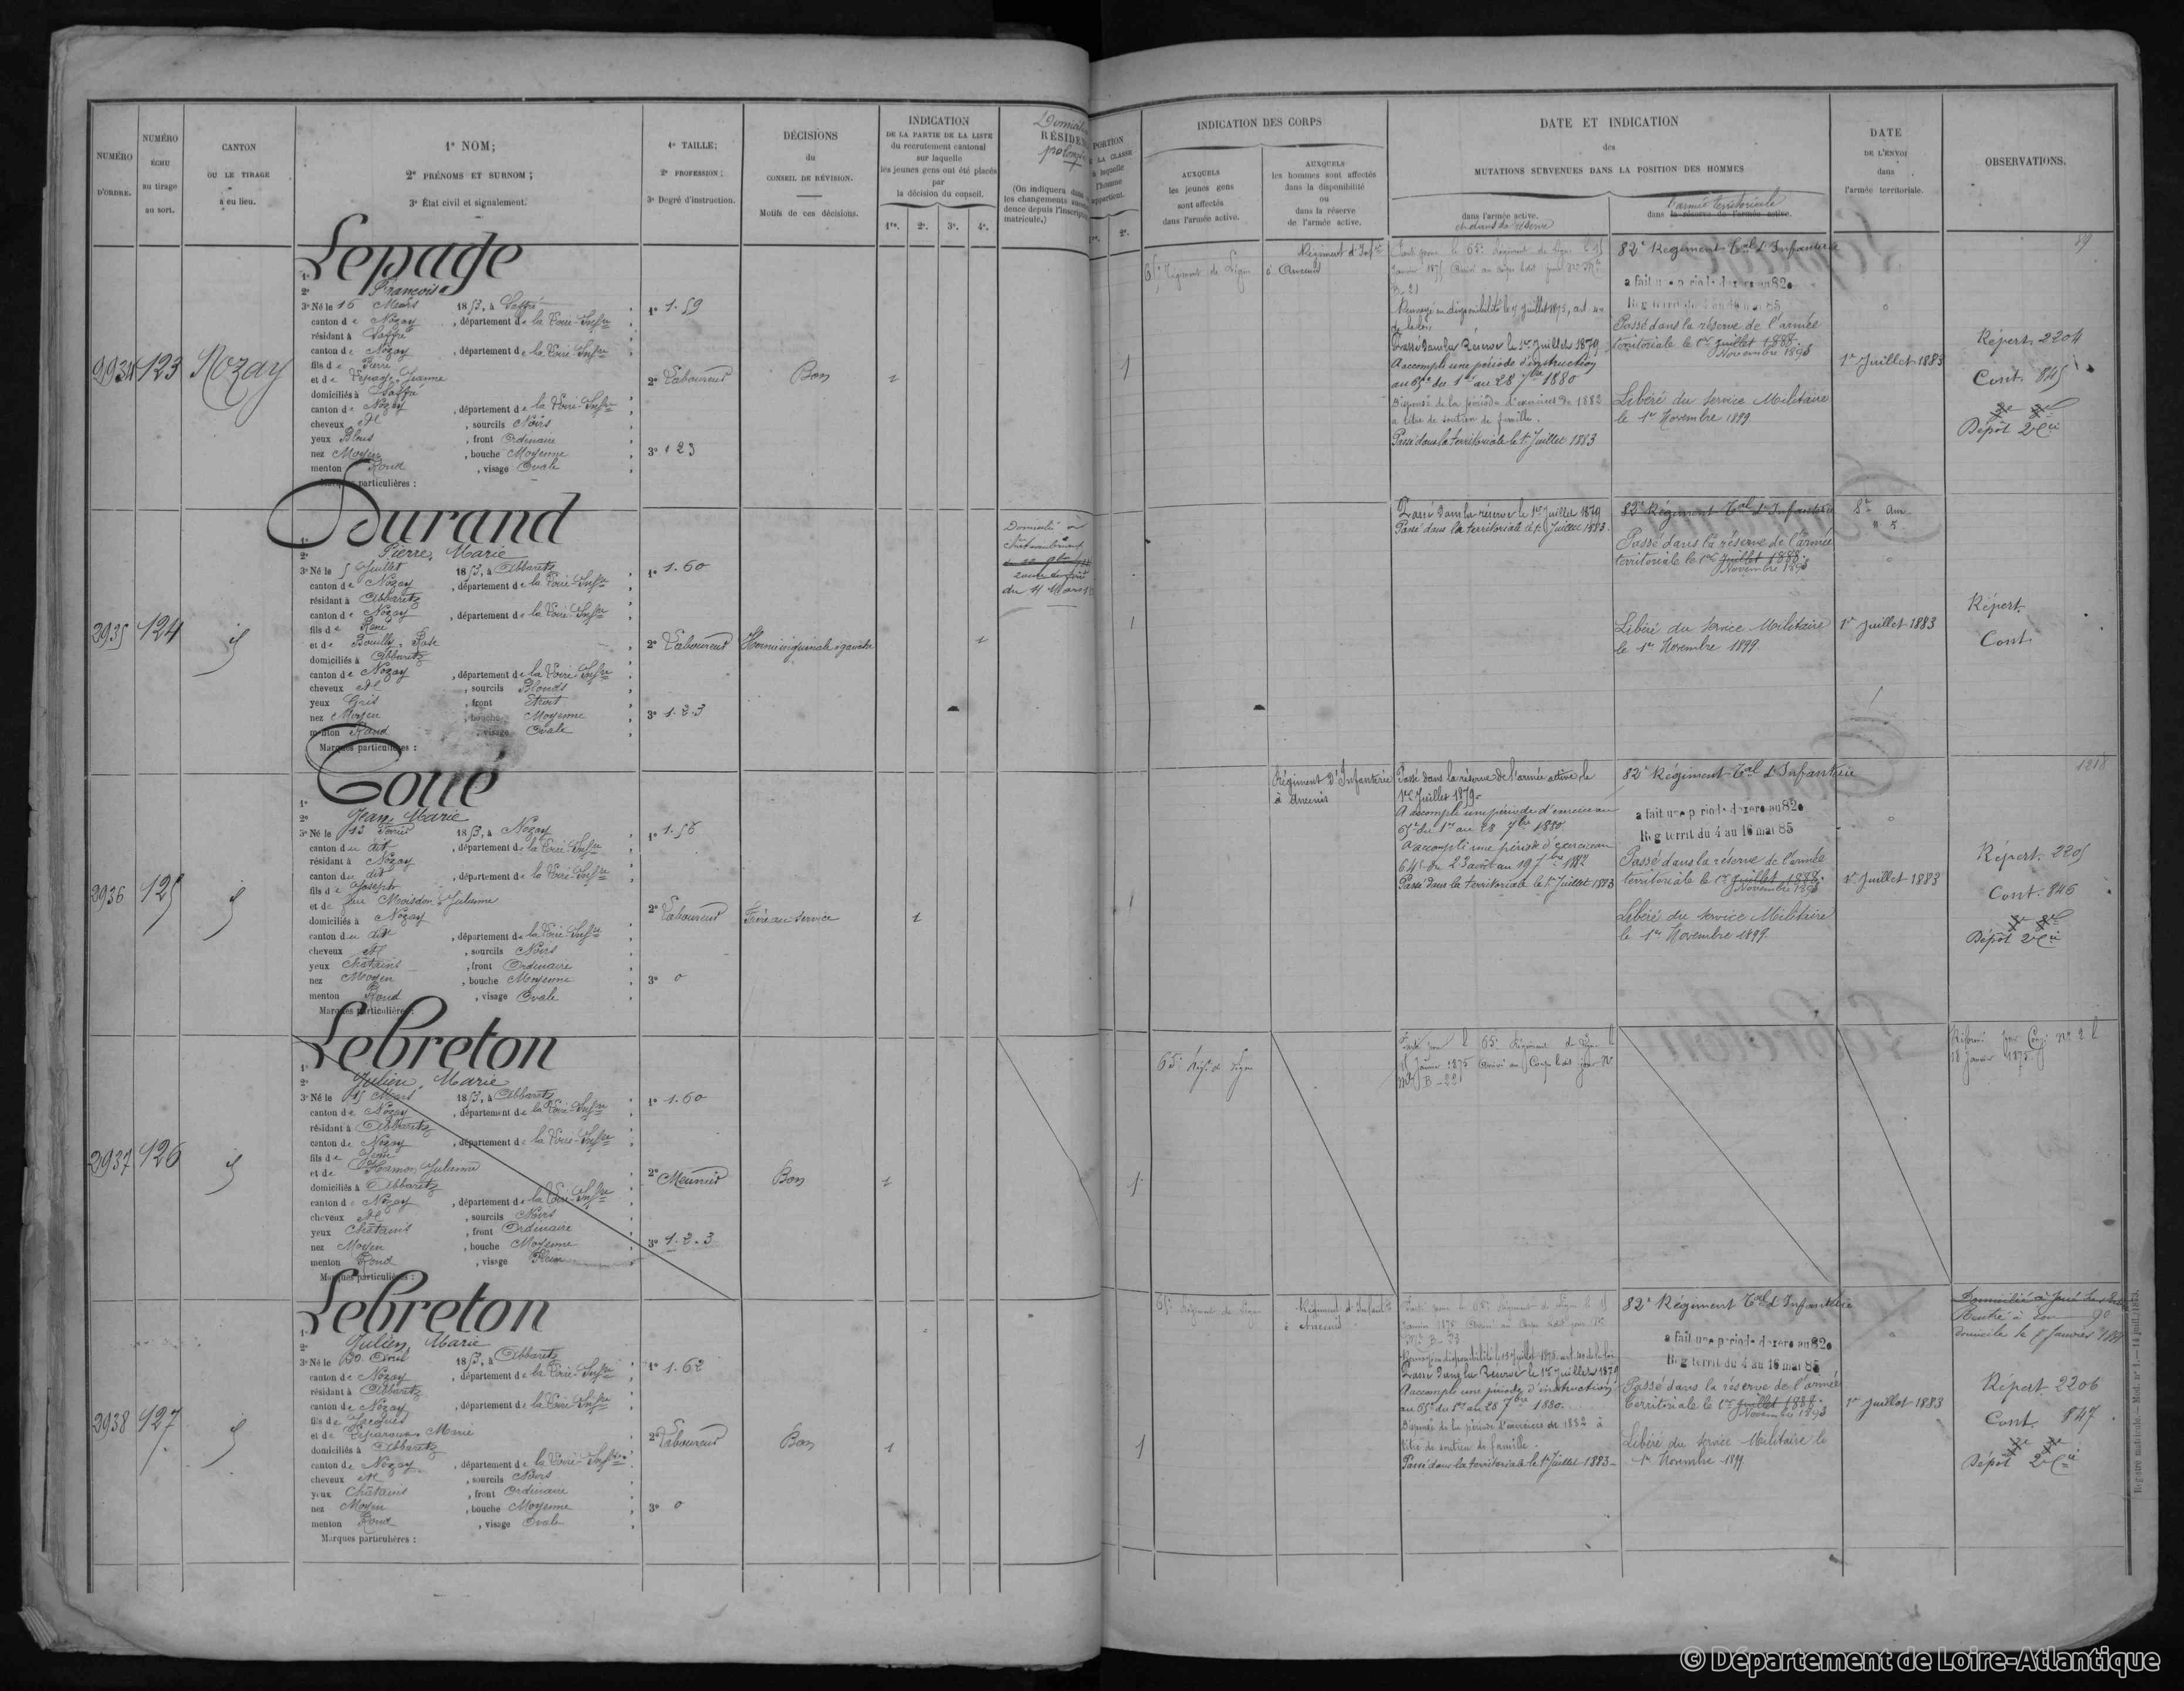 NUMÉRO
D'ORDRE.
NUMÉRO
ÉCHU
au tirage
au sort.
CANTON
OU LE TIRAGE
a eu lieu.
1° NOM;
2° PRÉNOMS ET SURNOM;
3° État civil et signalement.
1° TAILLE;
2° PROFESSION;
3° Degré d'instruction.
DÉCISIONS
du
CONSEIL DE RÉVISION.
Motifs de ces décisions.
INDICATION
DE LA PARTIE DE LA LISTE
du recrutement cantonal
sur laquelle
les jeunes gens ont été placés
par
la décision du conseil.
1re. 2e. 3e. 4e.
INDICATION DES CORPS
AUXQUELS
les jeunes gens
sont affectés
dans l'armée active.
AUXQUELS
les hommes sont affectés
dans la disponibilité
ou
dans la réserve
de l'armée active.
DATE ET INDICATION
des
MUTATIONS SURVENUES DANS LA POSITION DES HOMMES
dans l'armée active.
et dans la réserve
l'armée territoriale
dans la réserve de l'armée active.
DATE
DE L'ENVOI
dans
l'armée territoriale.
OBSERVATIONS.
2934 123 Nozay
1° Lepage
2° François
3° Né le 16 Mars 1853, à Saffré
canton de Nozay, département de la Loire-Infre
résidant à Saffré
canton de Nozay, département de la Loire-Infre
fils de Pierre
et de Lepage, Jeanne
domiciliés à Saffré
canton de Nozay, département de la Loire-Infre
cheveux et, sourcils Noirs
yeux Bleus, front Ordinaire
nez Moyen, bouche Moyenne
menton Rond, visage Ovale
Marques particulières :
1° 1.59
2° Laboureur
3° 1 2 3
Bon
1
65e Régiment de Ligne
Régiment d'Infie
à Ancenis
Renvoyé en disponibilité le 15 Juillet 1875, art. 40
de la loi
Passé dans la Réserve le 1er Juillet 1879
A accompli une période d'instruction
au 65e du 1er au 28 7bre 1880
Dispensé de la période d'exercices de 1882
à titre de soutien de famille.
Passé dans la territoriale le 1er Juillet 1883
82e Régiment Tal d'Infanterie
a fait une période d'exerc au 82e
Reg territ du 4 au 16 mai 85
Passé dans la réserve de l'armée
territoriale le 1er Juillet 1888.
Novembre 1893
Libéré du Service Militaire
le 1er Novembre 1899
1er Juillet 1883
89
Répert. 2204
Cont. 845
Dépôt 2e Cie
2935 124 id
1° Durand
2° Pierre, Marie
3° Né le 5 Juillet 1853, à Abbaretz
canton de Nozay, département de la Loire-Infre
résidant à Abbaretz
canton de Nozay, département de la Loire-Infre
fils de René
et de Bouillé, Rose
domiciliés à Abbaretz
canton de Nozay, département de la Loire-Infre
cheveux et, sourcils Blonds
yeux Gris, front Etroit
nez Moyen, bouche Moyenne
menton Rond, visage Ovale
Marques particulières :
1° 1.60
2° Laboureur
3° 1.2.3
Hernie inguinale gauche
1
Domicilié à
Châteaubriant
Passé dans la réserve le 1er Juillet 1879
Passé dans la territoriale le 1er Juillet 1883.
82e Régiment Tal d'Infanterie
Passé dans la réserve de l'armée
territoriale le 1er Juillet 1888.
Novembre 1893
Libéré du Service Militaire
le 1er Novembre 1899.
1er Juillet 1883
Répert.
Cont.
2936 125 id
1° Coué
2° Jean, Marie
3° Né le 13 Février 1853, à Nozay
canton du dit, département de la Loire-Infre
résidant à Nozay
canton du dit, département de la Loire-Infre
fils de Joseph
et de feu Moisdon, Julienne
domiciliés à Nozay
canton du dit, département de la Loire-Infre
cheveux et, sourcils Noirs
yeux Châtains, front Ordinaire
nez Moyen, bouche Moyenne
menton Rond, visage Ovale
Marques particulières :
1° 1.56
2° Laboureur
3° 0
Frère au service
1
Régiment d'Infanterie
à Ancenis
Passé dans la réserve de l'armée active le
1er Juillet 1879.
A accompli une période d'exercices au
65e du 1er au 28 7bre 1880
A accompli une période d'exercices au
64e du 23 août au 19 7bre 1882
Passé dans la territoriale le 1er Juillet 1883
82e Régiment Tal d'Infanterie
a fait une période d'exerc au 82e
Reg territ du 4 au 16 mai 85
Passé dans la réserve de l'armée
territoriale le 1er Juillet 1888.
Novembre 1893
Libéré du Service Militaire
le 1er Novembre 1899.
1er Juillet 1883
1218
Répert. 2205
Cont. 846
Dépôt 2e Cie
2937 126 id
1° Lebreton
2° Julien, Marie
3° Né le 15 Mars 1853, à Abbaretz
canton de Nozay, département de la Loire-Infre
résidant à Abbaretz
canton de Nozay, département de la Loire-Infre
fils de Jean
et de Hamon, Julienne
domiciliés à Abbaretz
canton de Nozay, département de la Loire-Infre
cheveux et, sourcils Noirs
yeux Châtains, front Ordinaire
nez Moyen, bouche Moyenne
menton Rond, visage Plein
Marques particulières :
1° 1.60
2° Meunier
3° 1.2.3
Bon
1
65e Régt de Ligne
Réformé par Congé no 2 le
18 Janvier 1875
2938 127 id
1° Lebreton
2° Julien, Marie
3° Né le 30 Avril 1853, à Abbaretz
canton de Nozay, département de la Loire-Infre
résidant à Abbaretz
canton de Nozay, département de la Loire-Infre
fils de Jacques
et de Leparoux, Marie
domiciliés à Abbaretz
canton de Nozay, département de la Loire-Infre
cheveux et, sourcils Noirs
yeux Châtains, front Ordinaire
nez Moyen, bouche Moyenne
menton Rond, visage Ovale
Marques particulières :
1° 1.62
2° Laboureur
3° 0
Bon
1
65e Régiment de Ligne
Régiment d'Infanterie
à Ancenis
Passé dans la Réserve le 1er Juillet 1879
A accompli une période d'instruction
au 65e du 1er au 28 7bre 1880.
Dispensé de la période d'exercices de 1882 à
titre de soutien de famille.
Passé dans la territoriale le 1er Juillet 1883
82e Régiment Tal d'Infanterie
a fait une période d'exerc au 82e
Reg territ du 4 au 16 mai 85
Passé dans la réserve de l'armée
territoriale le 1er Juillet 1888.
Novembre 1893
Libéré du Service Militaire le
1er Novembre 1899
1er Juillet 1883
Répert 2206
Cont. 847
Dépôt 2e Cie
© Département de Loire-Atlantique